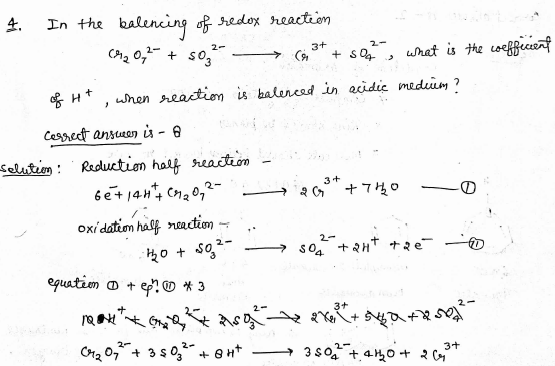 4. In the balencing of redox reaction
Cr₂O₇²⁻ + SO₃²⁻ ⟶ Cr³⁺ + SO₄²⁻, what is the coefficient
of H⁺, when reaction is balenced in acidic medium?
Correct answer is - 8
Solution: Reduction half reaction -
6e⁻ + 14H⁺ + Cr₂O₇²⁻ ⟶ 2Cr³⁺ + 7H₂O —— Ⓘ
Oxidation half reaction -
H₂O + SO₃²⁻ ⟶ SO₄²⁻ + 2H⁺ + 2e⁻ —Ⅱ
equation Ⓘ + eqⁿ. Ⅱ * 3
Cr₂O₇²⁻ + 3SO₃²⁻ + 8H⁺ ⟶ 3SO₄²⁻ + 4H₂O + 2Cr³⁺